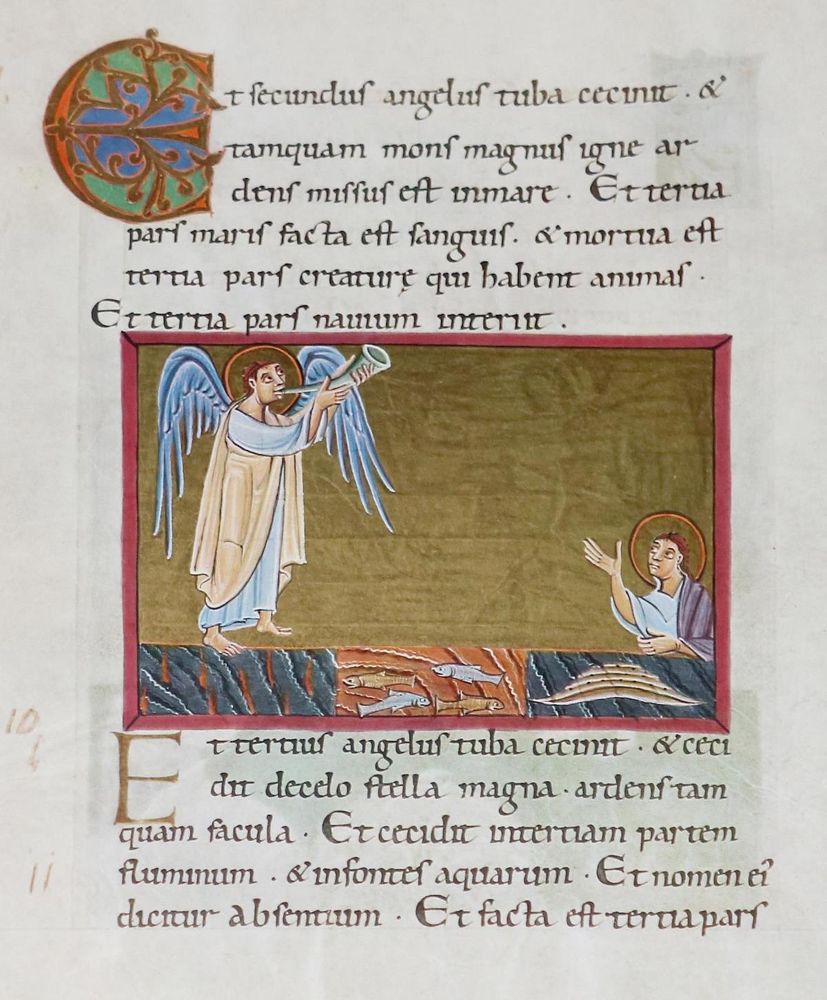 Et secundus angelus tuba cecinit · &
tamquam mons magnus igne ar
dens missus est inmare · Et tertia
pars maris facta est sanguis · & mortua est
tertia pars creaturę qui habent animas ·
Et tertia pars navium interiit .
Et tertius angelus tuba cecinit · & ceci
dit decelo stella magna · ardens tam
quam facula · Et cecidit intertiam partem
fluminum · & infontes aquarum · Et nomen ei᾽
dicitur absentium · Et facta est tertia pars
10
11